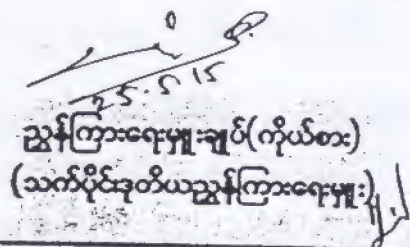 25.5.15
ညွှန်ကြားရေးမှူးချုပ်(ကိုယ်စား)
(သက်ပိုင်ဒုတိယညွှန်ကြားရေးမှူး)